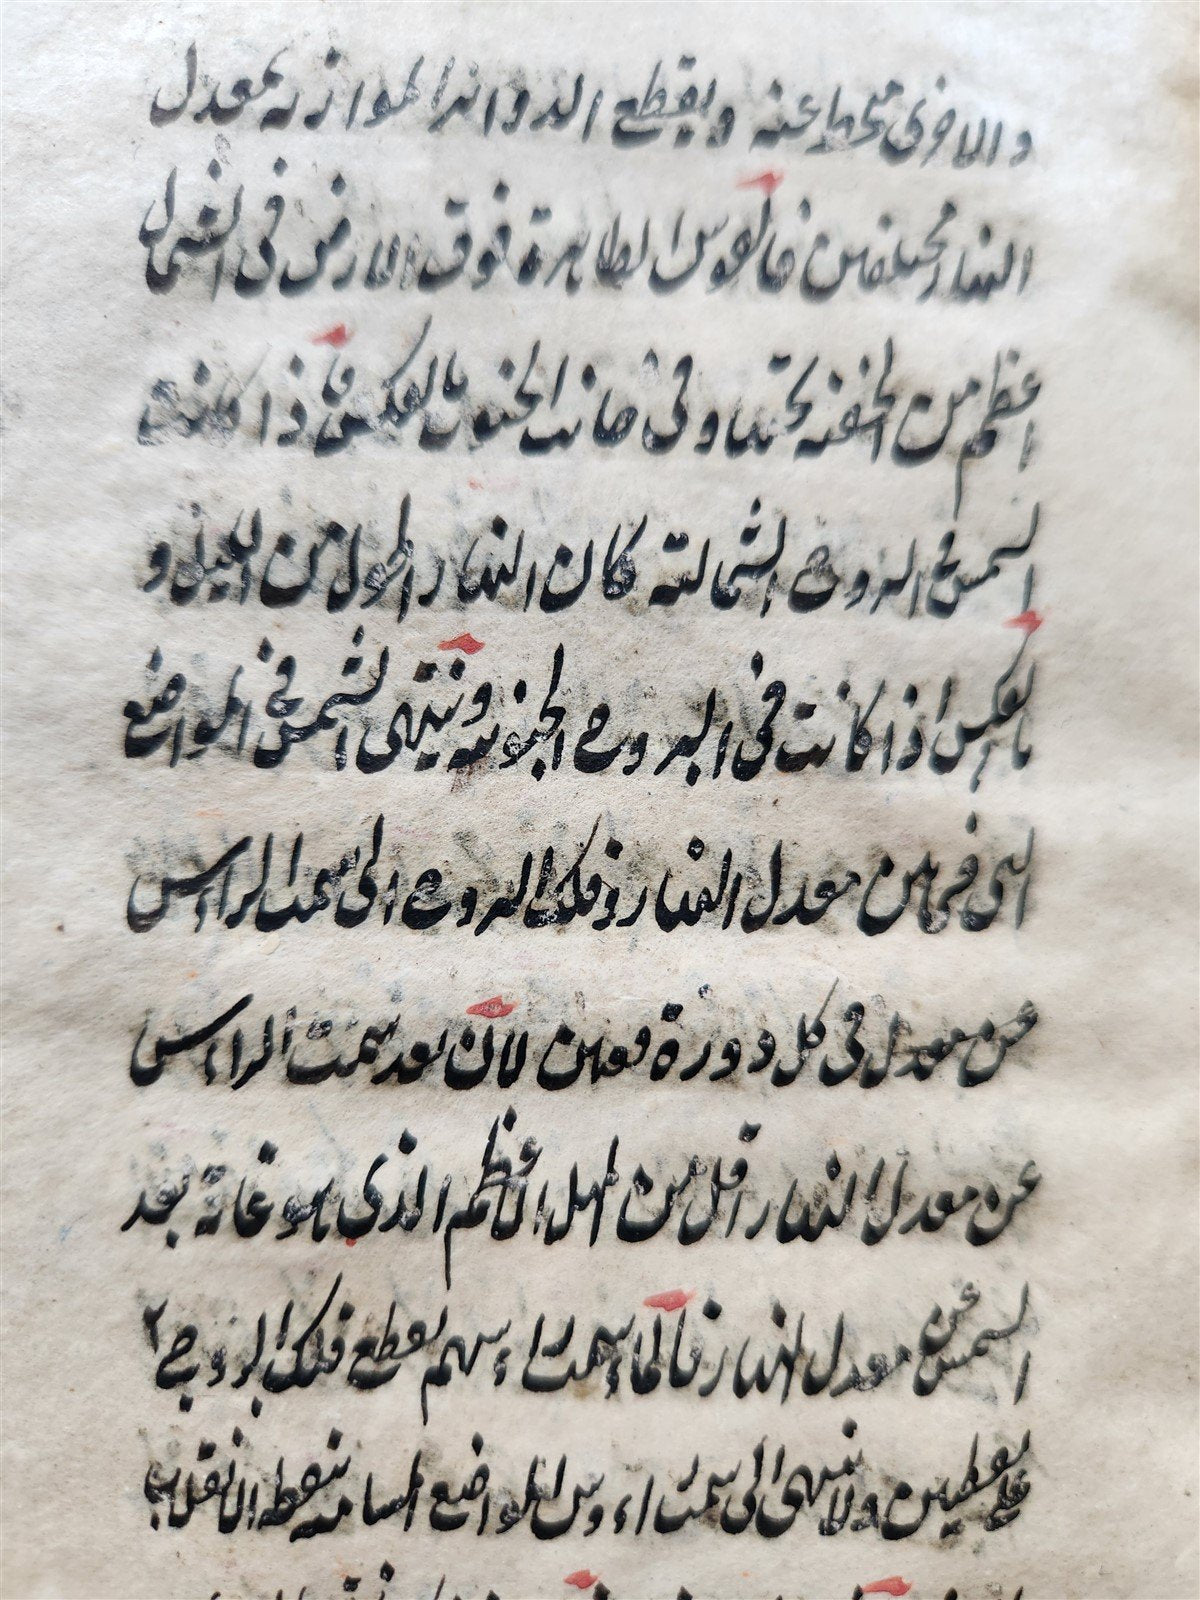 والاخرى منحط عنه ويقطع الدوائر الموازية لمعدل
النهار مختلفين فالقوس الظاهرة فوق الارض فى الشمال
اعظم من الخفية تحتها وفى جانب الجنوب بالعكس فاذا كانت
الشمس فى البروج الشمالية كان النهار اطول من الليل و
بالعكس اذا كانت فى البروج الجنوبية وينتهى الشمس فى المواضع
التى فيما بين معدل النهار وفلك البروج الى سمت الراس
عن معدل فى كل دورة مرتين لان بعد سمت الراس
عن معدل النهار اقل من الميل الاعظم الذى هو غاية بعد
الشمس عن معدل النهار فالمار بسمت راسهم يقطع فلك البروج
على نقطتين ولا ينتهى الى سمت رءوس المواضع المسامتة لنقطة الانقلاب